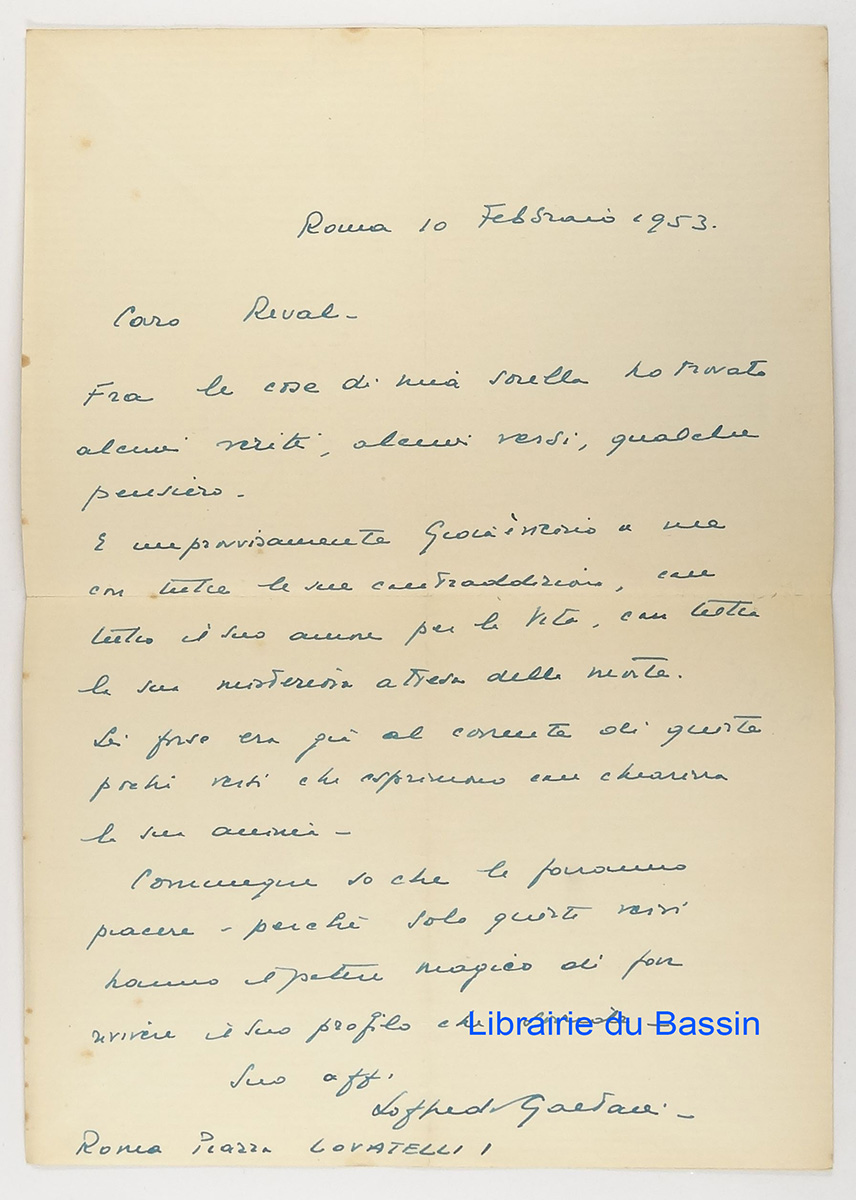 Roma 10 Febbraio 1953.
Caro Reval -
Fra le cose di mia sorella ho trovato
alcuni scritti, alcuni versi, qualche
pensiero -
E improvvisamente Gioia è vicino a me
con tutte le sue contraddizioni, con
tutto il suo amore per la Vita, con tutta
la sua misteriosa attesa della morte.
Lei forse era già al corrente di questi
pochi versi che esprimono con chiarezza
la sua anima -
Comunque so che le faranno
piacere - perchè solo questi versi
hanno il potere magico di far
rivivere il suo profilo che
Librairie du Bassin
Suo aff.
Loffredo Gaetani -
Roma Piazza LOVATELLI 1